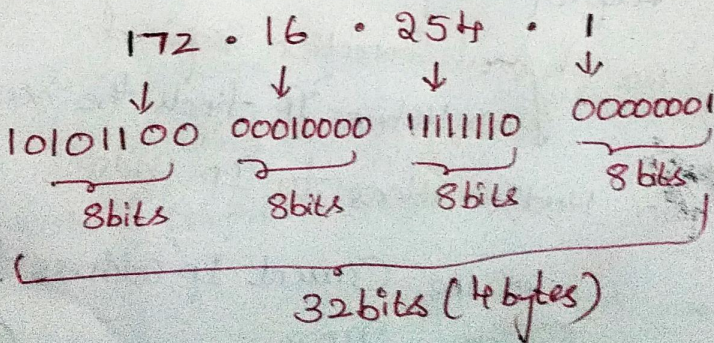 172 . 16 . 254 . 1
10101100 00010000 11111110 00000001
8bits 8bits 8bits 8bits
32bits (4bytes)